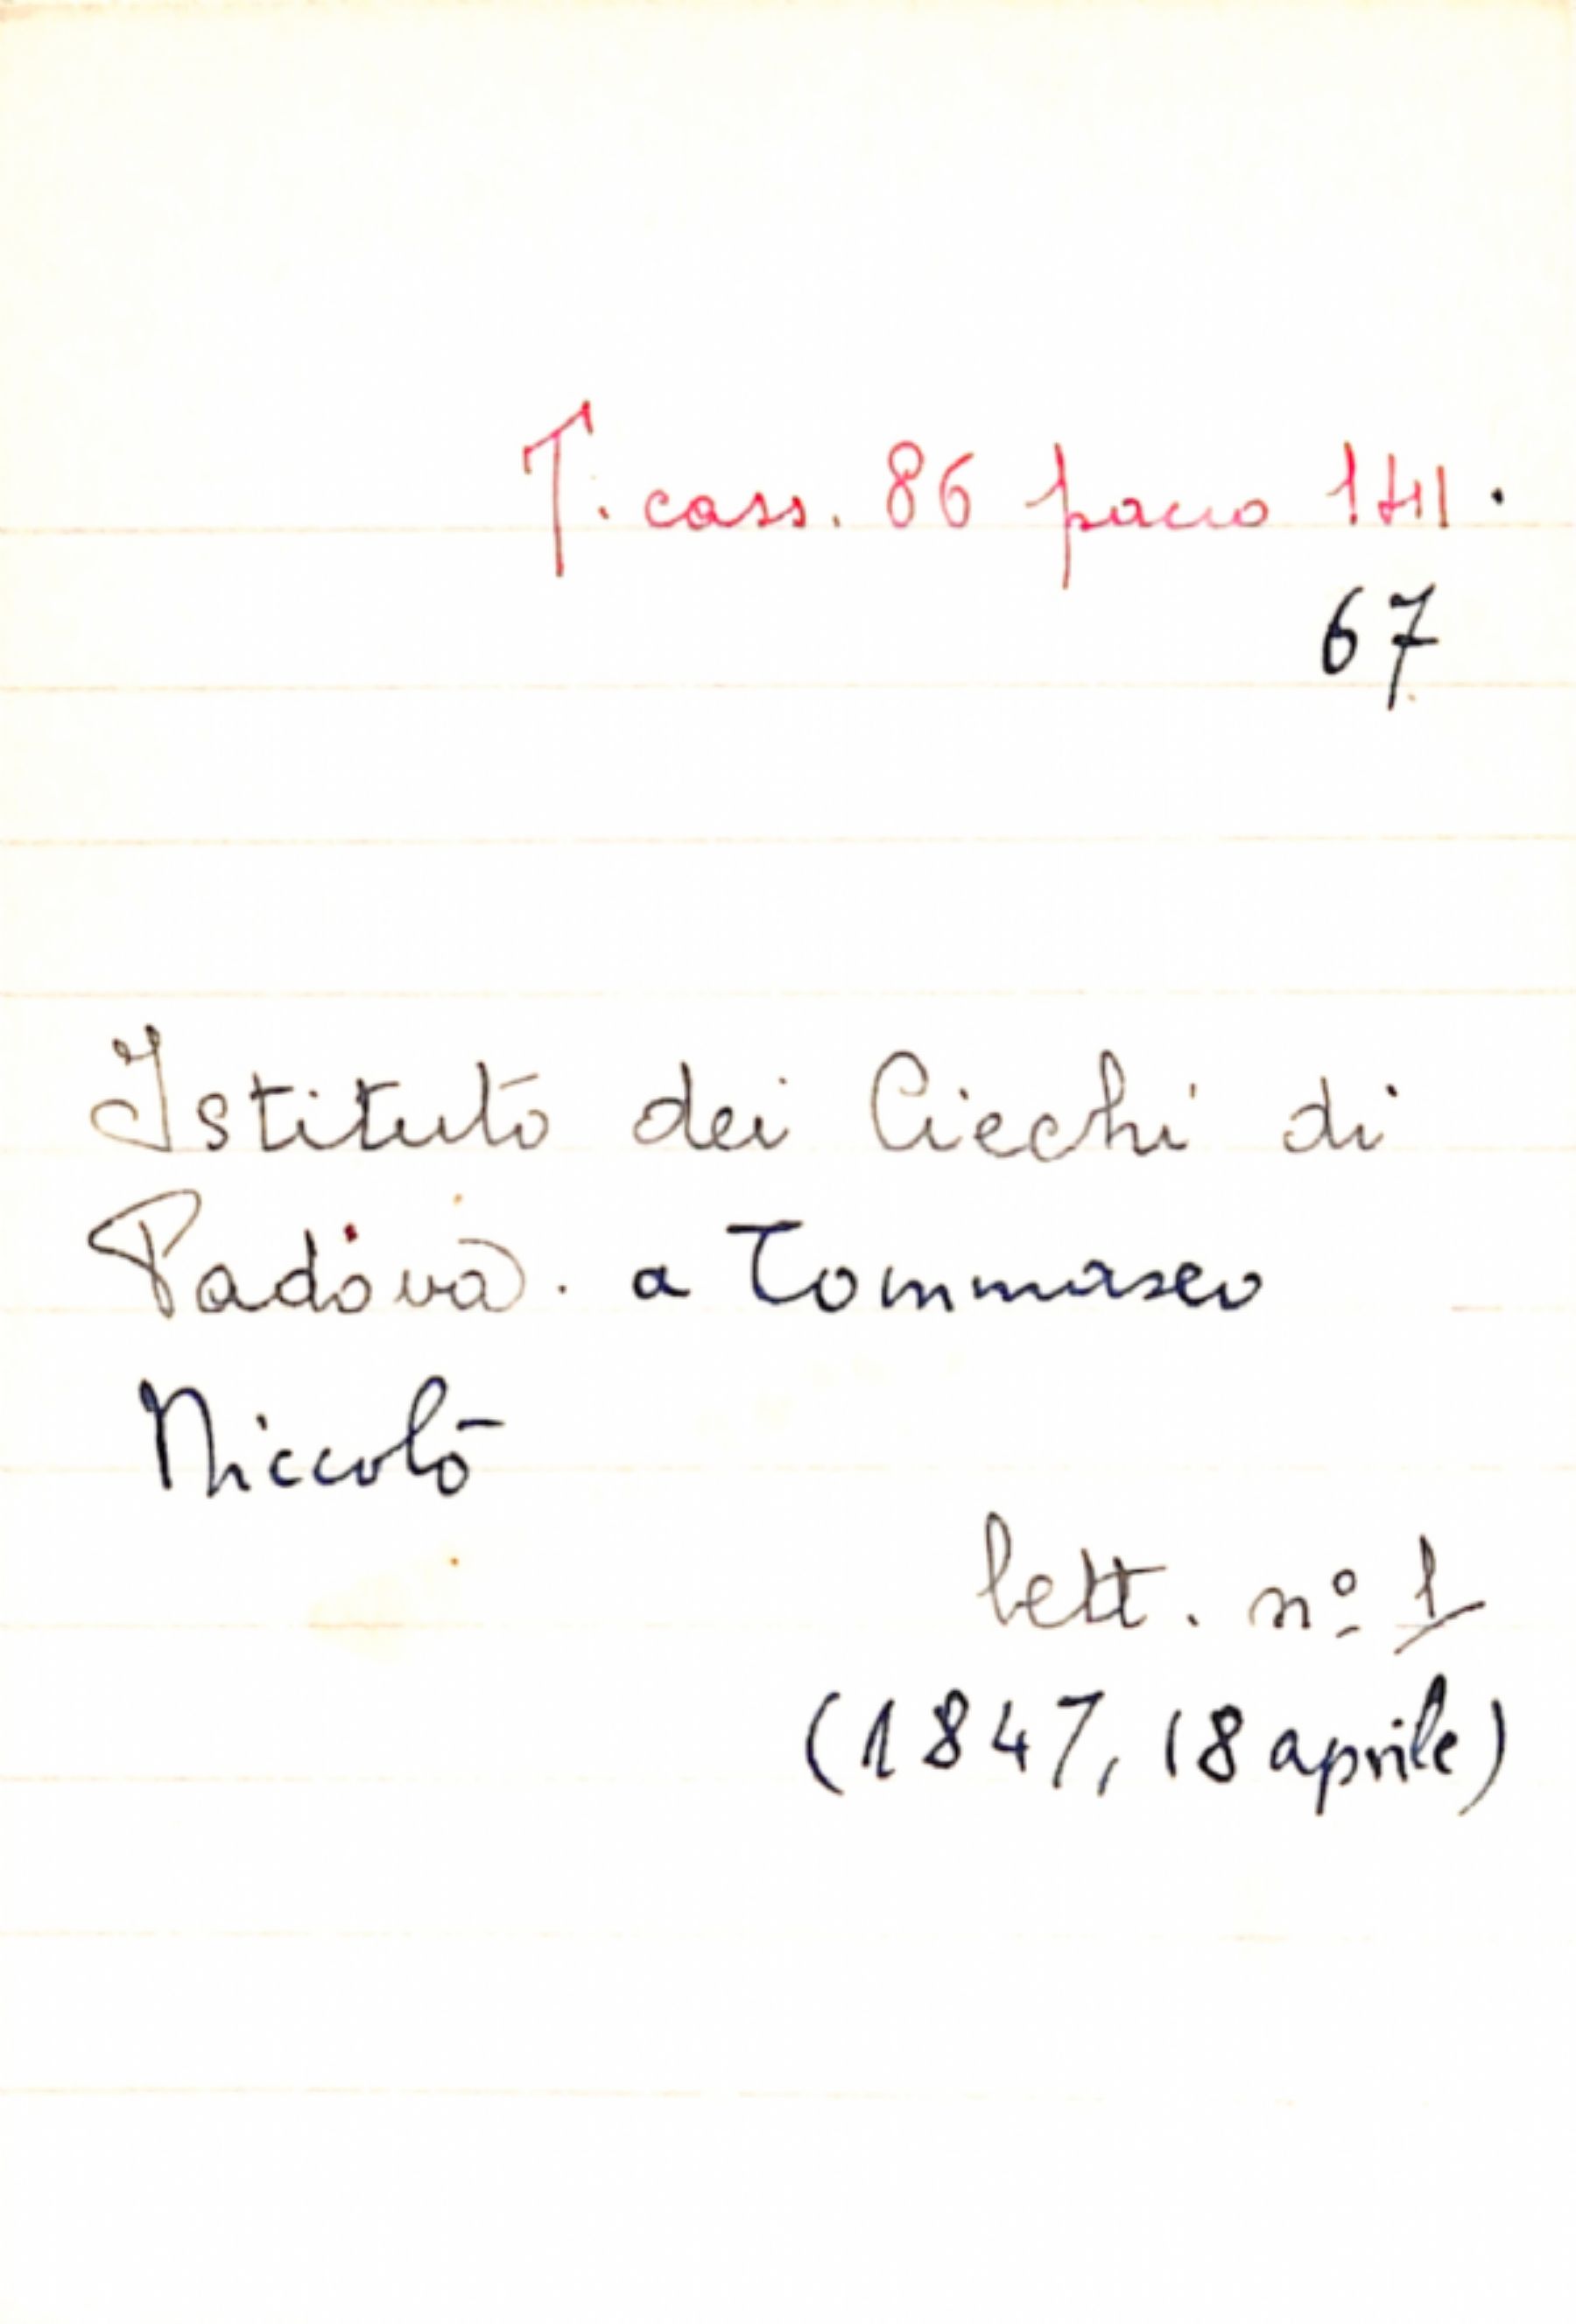 T. cass. 86 pacco 141.
67
Istituto dei Ciechi di
Padova. a Tommaseo
Niccolò
lett. nº 1
(1847, 18 aprile)